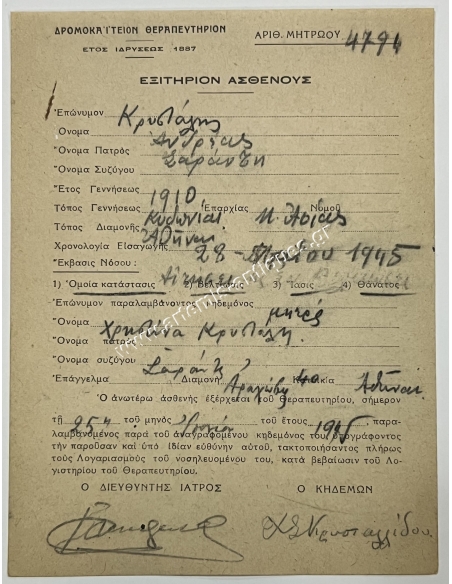 ΔΡΟΜΟΚΑΪΤΕΙΟΝ ΘΕΡΑΠΕΥΤΗΡΙΟΝ
ΕΤΟΣ ΙΔΡΥΣΕΩΣ 1887
ΑΡΙΘ. ΜΗΤΡΩΟΥ 4794
ΕΞΙΤΗΡΙΟΝ ΑΣΘΕΝΟΥΣ
Ἐπώνυμον Κρυστάλης
Ὄνομα Ἀνδρέας
Ὄνομα Πατρὸς Σαράντη
Ὄνομα Συζύγου
Ἔτος Γεννήσεως 1910
Τόπος Γεννήσεως Κυδωνίαι Ἐπαρχίας Μ. Ἀσίας Νομοῦ
Τόπος Διαμονῆς Ἀθῆναι
Χρονολογία Εἰσαγωγῆς 28 1945
Ἔκβασις Νόσου :
1) Ὁμοία κατάστασις 2) Βελτίωσις 3) Ἴασις 4) Θάνατος
Ἐπώνυμον παραλαμβάνοντος κηδεμόνος μητρός
Ὄνομα Χρηστίνα Κρυστάλη
Ὄνομα πατρὸς
Ὄνομα συζύγου Σαράντη
Ἐπάγγελμα Διαμονὴ 40 Κατοικία Ἀθῆναι
Ὁ ἀνωτέρω ἀσθενὴς ἐξέρχεται τοῦ Θεραπευτηρίου, σήμερον
τῇ 25η τοῦ μηνὸς τοῦ ἔτους 1945 παρα-
λαμβανόμενος παρὰ τοῦ ἀναγραφομένου κηδεμόνος του ὑπογράφοντος
τὴν παροῦσαν καὶ ὑπὸ ἰδίαν εὐθύνην αὐτοῦ, τακτοποιήσαντος πλήρως
τοὺς Λογαριασμοὺς τοῦ νοσηλευομένου του, κατὰ βεβαίωσιν τοῦ Λο-
γιστηρίου τοῦ Θεραπευτηρίου.
Ο ΔΙΕΥΘΥΝΤΗΣ ΙΑΤΡΟΣ
Ο ΚΗΔΕΜΩΝ